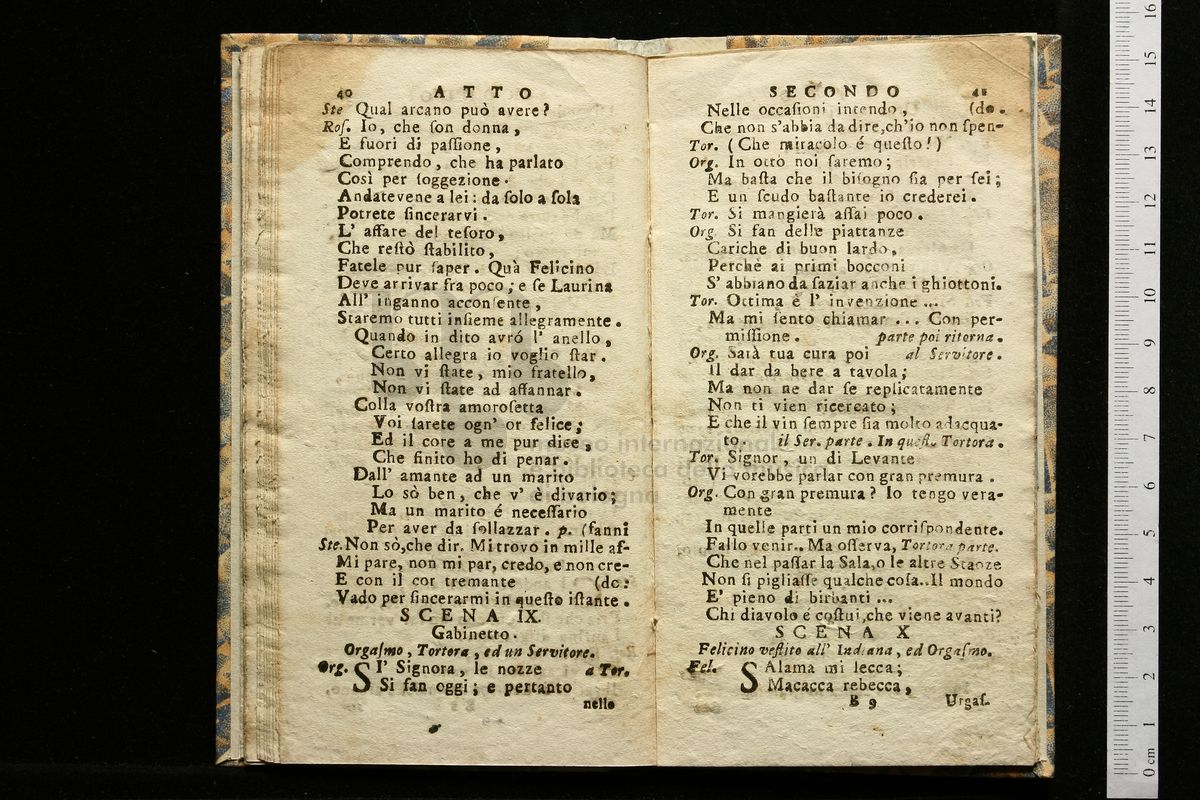 40 ATTO
Ste Qual arcano può avere?
Roſ. Io, che ſon donna,
E fuori di paſſione,
Comprendo, che ha parlato
Così per ſoggezione.
Andatevene a lei: da ſolo a ſola
Potrete ſincerarvi.
L' affare del teſoro,
Che reſtò ſtabilito,
Fatele pur ſaper. Quà Felicino
Deve arrivar fra poco; e ſe Laurina
All' inganno acconſente,
Staremo tutti inſieme allegramente.
Quando in dito avró l' anello,
Certo allegra io voglio ſtar.
Non vi ſtate, mio fratello,
Non vi ſtate ad affannar.
Colla voſtra amoroſetta
Voi ſarete ogn' or felice;
Ed il core a me pur dice,
Che finito ho di penar.
Dall' amante ad un marito
Lo sò ben, che v' è divario;
Ma un marito é neceſſario
Per aver da ſollazzar. p. (fanni
Ste. Non sò, che dir. Mi trovo in mille af-
Mi pare, non mi par, credo, e non cre-
E con il cor tremante (do:
Vado per ſincerarmi in queſto iſtante.
SCENA IX.
Gabinetto.
Orgaſmo, Tortora, ed un Servitore.
Org. SI' Signora, le nozze a Tor.
Si fan oggi; e pertanto
nelle
SECONDO 41
Nelle occaſioni intendo, (do.
Che non s'abbia da dire, ch'io non ſpen-
Tor. (Che miracolo é queſto!)
Org. In otto noi ſaremo;
Ma baſta che il biſogno ſia per ſei;
E un ſcudo baſtante io crederei.
Tor. Si mangierà aſſai poco.
Org. Si fan delle piattanze
Cariche di buon lardo,
Perchè ai primi bocconi
S' abbiano da ſaziar anche i ghiottoni.
Tor. Ottima è l' invenzione ...
Ma mi ſento chiamar ... Con per-
miſſione. parte poi ritorna.
Org. Sarà tua cura poi al Servitore.
Il dar da bere a tavola;
Ma non ne dar ſe replicatamente
Non ti vien ricercato;
E che il vin ſempre ſia molto adacqua-
to. il Ser. parte. In queſt. Tortora.
Tor. Signor, un di Levante
Vi vorebbe parlar con gran premura.
Org. Con gran premura? Io tengo vera-
mente
In quelle parti un mio corriſpondente.
Fallo venir.. Ma oſſerva, Tortora parte.
Che nel paſſar la Sala, o le altre Stanze
Non ſi pigliaſſe qualche coſa.. Il mondo
E' pieno di birbanti ...
Chi diavolo é coſtui, che viene avanti?
SCENA X
Felicino veſtito all' Indiana, ed Orgaſmo.
Fel. SAlama mi lecca;
Macacca rebecca,
B 9 Urgaſ-